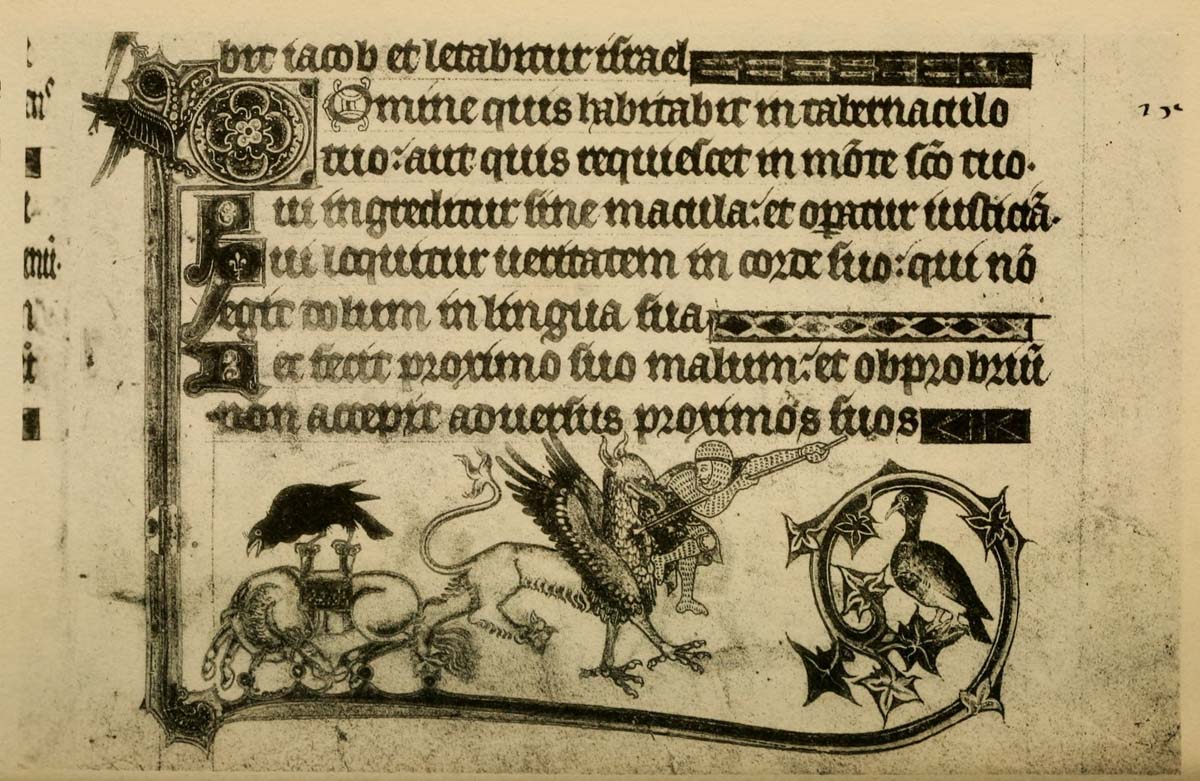 bit iacob et letabitur israel
Domine quis habitabit in tabernaculo
tuo: aut quis requiescet in mōte scō tuo.
Qui ingreditur sine macula: et oꝑatur iusticiā.
Qui loquitur ueritatem in corde suo: qui nō
egit dolum in lingua sua
Nec fecit proximo suo malum: et obprobriū
non accepit aduersus proximos suos